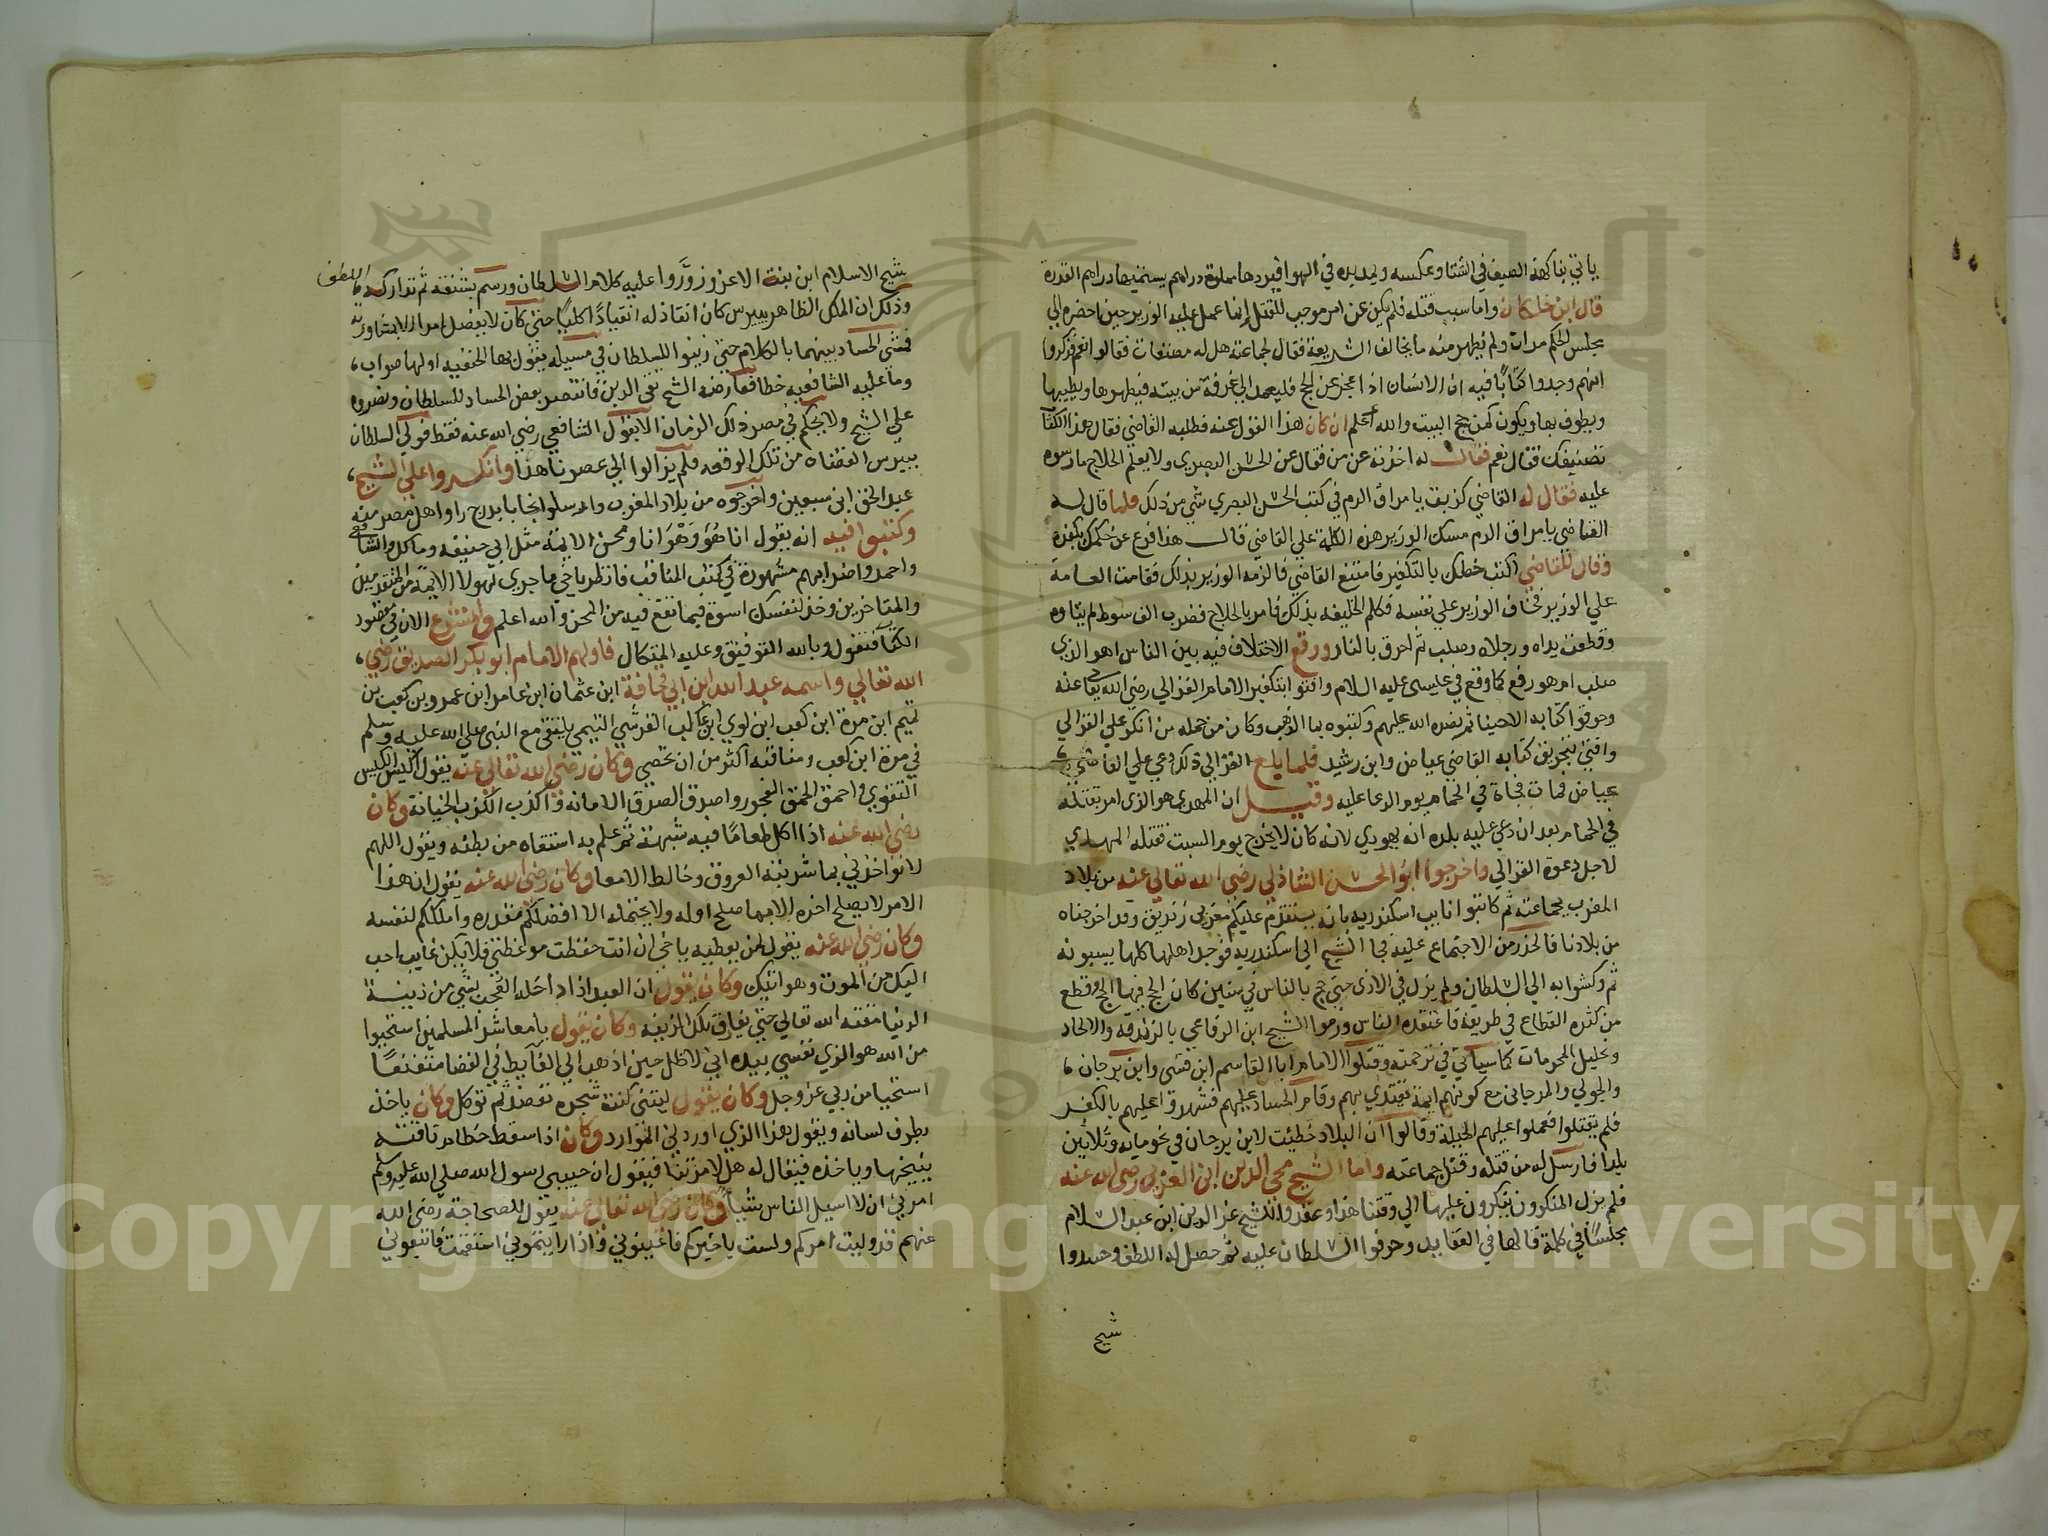 ياتي بفاكهة الصيف في الشتا وعكسه ويمد يده في الهوا فيردها مملوة دراهم يسميها دراهم القدرة
قال ابن خلكان واما سبب قتله فلم يكن عن امر موجب للقتل انما عمل عليه الوزير حين احضره الي
مجلس الحكم مرات ولم يظهر منه ما يخالف الشريعة فقال لجماعته هل له مصنفات فقالوا نعم فذكروا
انهم وجدوا كتابا فيه ان الانسان اذا عجز عن الحج فليعمد الي غرفة من بيته فيطهرها ويطيبها
ويطوف بها ويكون كمن حج البيت والله اعلم ان كان هذا القول عنه فطلبه القاضي فقال هذا الكتاب
تصنيفك فقال نعم فقال له اخذته عن من فقال عن الحسن البصري ولا يعلم الحلاج ما دسوه
عليه فقال له القاضي كذبت يا مراق الدم في كتب الحسن البصري شي من ذلك فلما قال له
القاضي يا مراق الدم مسك الوزير هذه الكلمة علي القاضي قال هذا فرع عن حكمك بكفره
وقال للقاضي اكتب خطك بالتكفير فامتنع القاضي فالزمه الوزير بذلك فقامت العامة
علي الوزير فخاف الوزير علي نفسه فكلم الخليفه بذلك فامر بالحلاج فضرب الف سوط لم يتاوه
وقطعت يداه ورجلاه وصلب ثم احرق بالنار ووقع الاختلاف فيه بين الناس اهو الذي
صلب ام هو رفع كما وقع في عيسي عليه السلام وافتوا بتكفير الامام الغزالي رضي الله تعا عنه
وحرقوا كتابه الاحيا ثم نصره الله عليهم وكتبوه بما الذهب وكان من جمله من انكر علي الغزالي
وافتي بتحريق كتابه القاضي عياض وابن رشيد فلما بلغ الغزالي ذلك دعي علي القاضي
عياض فمات فجاة في الحمام يوم الدعا عليه وقيل ان المهدي هو الذي امر بقتله
في الحمام بعد ان دعي عليه بلده انه يهودي لانه كان لا يخرج يوم السبت فقتله المهدي
لاجل دعوة الغزالي واخرجوا ابو الحسن الشاذلي رضي الله تعالي عنه من بلاد
المغرب بجماعته ثم كاتبوا نايب اسكندريه بانه سيقدم عليكم مغربي زنديق وقد اخرجناه
من بلادنا فالحذر من الاجتماع عليه فجا الشيخ الي اسكندريه فوجد اهلها كلها يسبونه
ثم وكشوا به الي السلطان ولم يزل في الاذي حتي حج بالناس في سنين كان الحج فيها الحج قطع
من كثره القطاع في طريقه فاعتقده الناس ورموا الشيخ ابن الرفاعي بالزندقه والالحاد
وتحليل المحرمات كما سياتي في ترجمته وقتلوا الامام ابا القاسم ابن قسي وابن برجان
والجولي والمرجاني مع كونهم ايمة يقتدي بهم وقام الحساد عليهم فشهدوا عليهم بالكفر
فلم يقتلوا فعملوا عليهم الحيلة وقالوا ان البلاد خطبت لابن برجان في نحو مايه وثلاثين
بلدا فارسل له من قتله وقتل جماعته واما الشيخ محي الدين ابن العربي رضي الله عنه
فلم يزل المنكرون ينكرون عليه الي وقتنا هذا وعقدوا للشيخ عز الدين ابن عبد السلام
مجلسا في كلمة قالها في العقايد وحرفوا السلطان عليه ثم حصل له اللطف وحسدوا
شيخ
شيخ الاسلام ابن بنت الاعز وزوروا عليه كلام السلطان ورسم بشنقه ثم تداركه اللطف
وذلك ان الملك الظاهر بيبرس كان انقاد له انقيادا كليا حتي كان لا يفصل امرا الا بمشاورته
فمشي الحساد بينهما بالكلام حتي زينوا للسلطان في مسيله يقول بها الحنفيه اولها صواب
وما عليه الشافعيه خطا فعارضه الشيخ تقي الدين فانتصر بعض الحساد للسلطان ونصروه
علي الشيخ ولا يحكم في مصر ذلك الزمان الا بقول الشافعي رضي الله عنه فقط فولي السلطان
بيبرس القضاه من تلك الوقعه فلم يزالوا الي عصرنا هذا وانكروا علي الشيخ
عبد الحق ابن سبعين واخرجوه من بلاد المغرب وارسلوا نجابا بدرج راوا اهل مصر منه
وكتبوا فيه انه يقول انا هو وهو انا ومحن الايمة مثل ابي حنيفه ومالك والشافعي
واحمد واضرابهم مشهورة في كتب المناقب فانظر ياخي ما جري لهولا الايمة من المتقدمين
والمتاخرين وخذ لنفسك اسوة فيما تقع فيه من المحن والله اعلم ولنشرع الان في مقصود
الكتاب فنقول وبالله التوفيق وعليه المتكال فاولهم الامام ابو بكر الصديق رضي
الله تعالي واسمه عبد الله ابن ابي قحافة ابن عثمان ابن عامر ابن عمرو بن كعب بن
تميم ابن مرة ابن كعب ابن لوي ابن غالب القرشي التيمي يلتقي مع النبي صلي الله عليه وسلم
في مرة ابن كعب ومناقبه اكثر من ان تحصي وكان رضي الله تعالي عنه يقول اكيس الكيس
التقوي واحمق الحمق الفجور واصدق الصدق الامانه واكذب الكذب الخيانة وكان
رضي الله عنه اذا اكل طعاما فيه شبهة ثم علم به استقاه من بطنه ويقول اللهم
لا تواخذني بما شربته العروق وخالط الامعا وكان رضي الله عنه يقول ان هذا
الامر لا يصلح اخره الا بما صلح اوله ولا يحتمله الا افضلكم مقدره واملككم لنفسه
وكان رضي الله عنه يقول لمن يعظيه ياخي ان انت حفظت موعظتي فلا يكن غايب احب
اليك من الموت وهو اتيك وكان يقول ان العبد اذا دخله العجب بشي من زينة
الدنيا مقته الله تعالي حتي يفارق تلك الزينه وكان يقول يا معاشر المسلمين استحيوا
من الله هو الذي نفسي بيده اني لاظل حين اذهب الي الغايط في الفضا متقنعا
استحيا من ربي عز وجل وكان يقول ليتني كنت شجره تعضد ثم توكل وكان ياخذ
بطرف لسانه ويقول هذا الذي اوردني الموارد وكان اذا سقط خطام ناقته
ينيخها وياخذه فيقال له هل لا امرتنا فيقول ان حبيبي رسول الله صلي الله عليه وسلم
امرني ان لا اسيل الناس شيا وكان رضي الله تعالي عنه يقول للصحابة رضي الله
عنهم قد وليت امركم ولست باخيركم فاعينوني واذا رايتموني استقمت فاتبعوني
Copyright © King Saud University